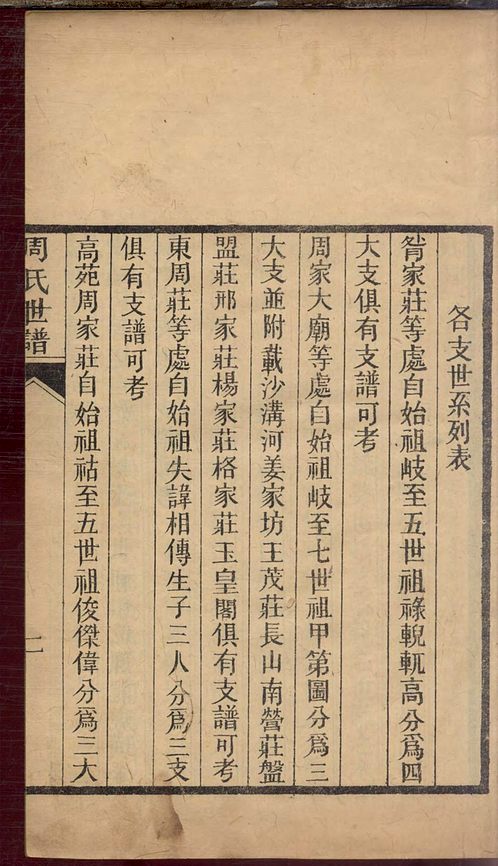 各支世系列表
胥家莊等處自始祖岐至五世祖祿輗軏高分爲四
大支俱有支譜可考
周家大廟等處自始祖岐至七世祖甲第圖分爲三
大支並附載沙溝河姜家坊王茂莊長山南營莊盤
盟莊邢家莊楊家莊格家莊玉皇閣俱有支譜可考
東周莊等處自始祖失諱相傳生子三人分爲三支
俱有支譜可考
高苑周家莊自始祖祜至五世祖俊傑偉分爲三大
周氏世譜